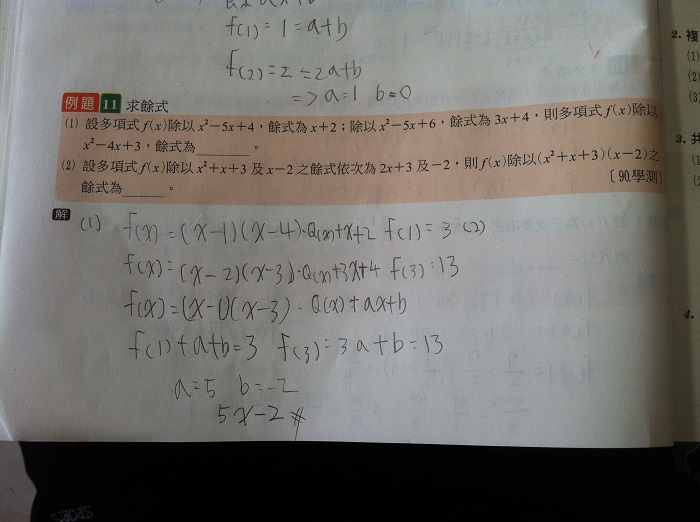 f(1)=1=a+b
f(2)=2=2a+b
=>a=1 b=0
例題 11 求餘式
(1) 設多項式 f(x)除以 x²-5x+4,餘式為 x+2;除以 x²-5x+6,餘式為 3x+4,則多項式 f(x)除以
x²-4x+3,餘式為______。
(2) 設多項式 f(x)除以 x²+x+3 及 x-2 之餘式依次為 2x+3 及 -2,則 f(x)除以(x²+x+3)(x-2)之
餘式為______。 〔90.學測〕
解 (1) f(x)=(x-1)(x-4)·Q(x)+x+2 f(1)=3 (2)
f(x)=(x-2)(x-3)·Q(x)+3x+4 f(3)=13
f(x)=(x-1)(x-3)·Q(x)+ax+b
f(1)+a+b=3 f(3)=3a+b=13
a=5 b=-2
5x-2#
2. 複
(1)
(2)
(3)
3. 共
(1)
4.